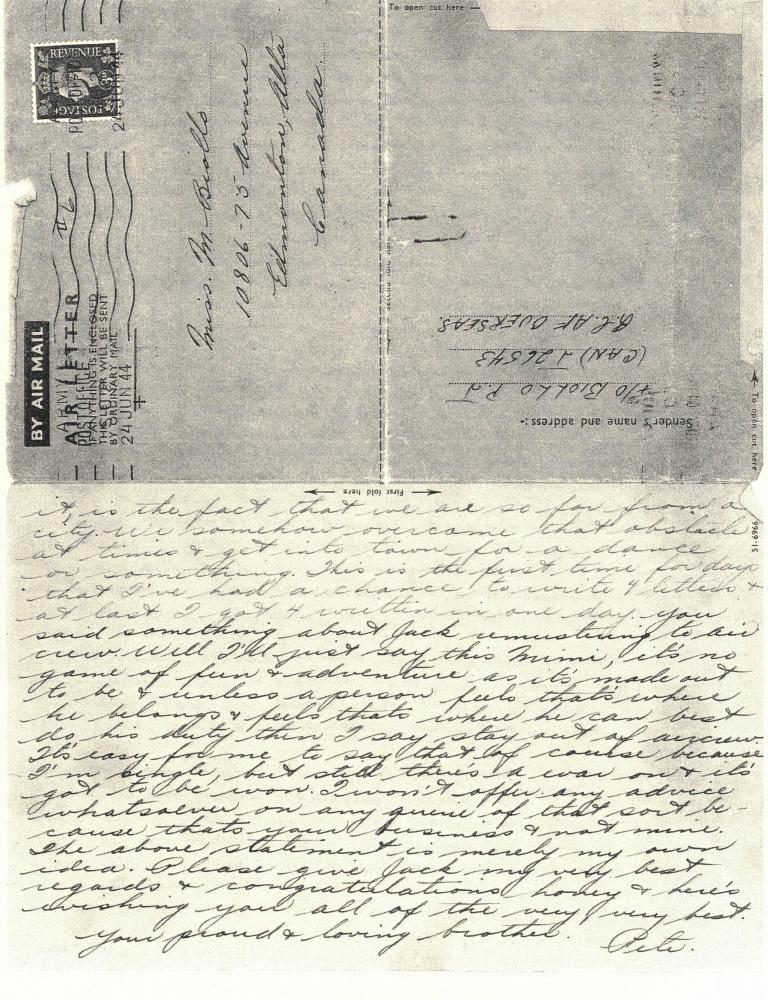 To open cut here
REVENUE
POSTAGE
24 JUN 44
#6
BY AIR MAIL
AIR LETTER
IF ANYTHING IS ENCLOSED
THIS LETTER WILL BE SENT
BY ORDINARY MAIL
24 JUN 44
Miss. M. Biollo
10806-75 Avenue
Edmonton, Alta
Canada.
Sender's name and address:-
F/O Biollo P.J
(CAN) J26543
R.C.A.F OVERSEAS.
To open cut here
First fold here
51-6996
it is the fact that we are so far from a
city. We somehow overcome that obstacle
at times & get into town for a dance
or something. This is the first time for days
that I've had a chance to write 4 letters &
at last I got 4 written in one day. You
said something about Jack remustering to air
crew. Well I'll just say this Mimi, it's no
game of fun & adventure as it's made out
to be & unless a person feels that's where
he belongs & feels thats where he can best
do his duty then I say stay out of aircrew.
It's easy for me to say that of course because
I'm single, but still there's a war on & it's
got to be won. I won't offer any advice
whatsoever on any querie of that sort be-
cause thats your business & not mine.
The above statement is merely my own
idea. Please give Jack my very best
regards & congratulations honey & here's
wishing you all of the very very best.
Your proud & loving brother.
Pete.